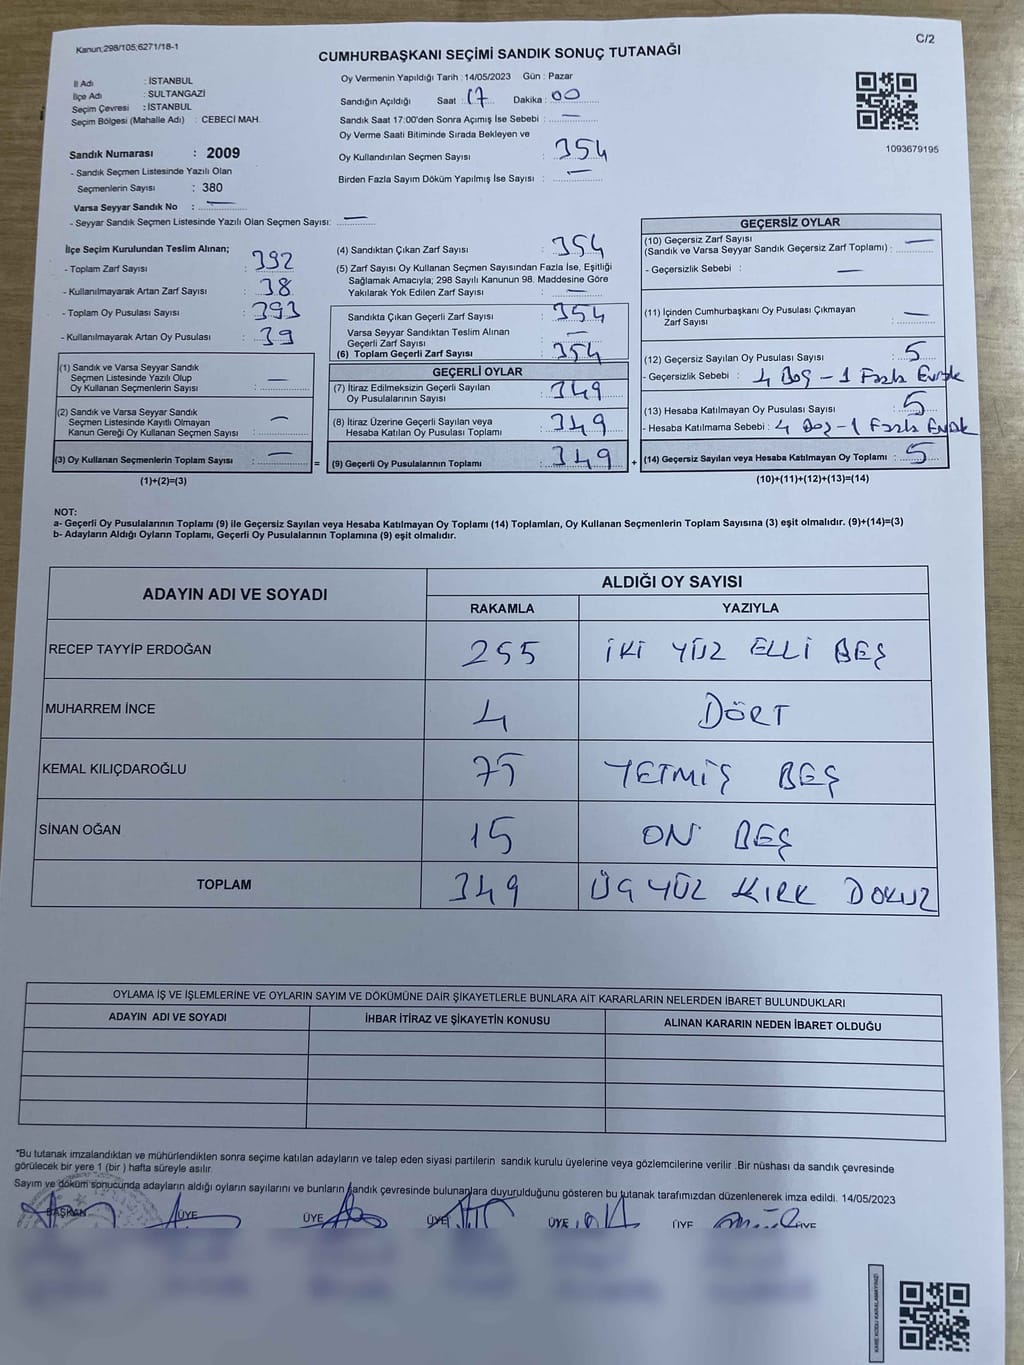 Kanun;298/105;6271/18-1
C/2
CUMHURBAŞKANI SEÇİMİ SANDIK SONUÇ TUTANAĞI
İl Adı : İSTANBUL
İlçe Adı : SULTANGAZİ
Seçim Çevresi : İSTANBUL
Seçim Bölgesi (Mahalle Adı) : CEBECİ MAH.
Sandık Numarası : 2009
- Sandık Seçmen Listesinde Yazılı Olan
Seçmenlerin Sayısı : 380
Varsa Seyyar Sandık No : —
- Seyyar Sandık Seçmen Listesinde Yazılı Olan Seçmen Sayısı: —
Oy Vermenin Yapıldığı Tarih :14/05/2023 Gün : Pazar
Sandığın Açıldığı Saat : 17 Dakika : 00
Sandık Saat 17:00'den Sonra Açımış İse Sebebi : —
Oy Verme Saati Bitiminde Sırada Bekleyen ve
Oy Kullandırılan Seçmen Sayısı : 354
Birden Fazla Sayım Döküm Yapılmış İse Sayısı : —
1093679195
İlçe Seçim Kurulundan Teslim Alınan;
- Toplam Zarf Sayısı : 392
- Kullanılmayarak Artan Zarf Sayısı : 38
- Toplam Oy Pusulası Sayısı : 393
- Kullanılmayarak Artan Oy Pusulası : 39
(1) Sandık ve Varsa Seyyar Sandık
Seçmen Listesinde Yazılı Olup
Oy Kullanan Seçmenlerin Sayısı : —
(2) Sandık ve Varsa Seyyar Sandık
Seçmen Listesinde Kayıtlı Olmayan
Kanun Gereği Oy Kullanan Seçmen Sayısı : —
(3) Oy Kullanan Seçmenlerin Toplam Sayısı : —
(1)+(2)=(3)
(4) Sandıktan Çıkan Zarf Sayısı : 354
(5) Zarf Sayısı Oy Kullanan Seçmen Sayısından Fazla İse, Eşitliği
Sağlamak Amacıyla; 298 Sayılı Kanunun 98. Maddesine Göre
Yakılarak Yok Edilen Zarf Sayısı : —
Sandıkta Çıkan Geçerli Zarf Sayısı : 354
Varsa Seyyar Sandıktan Teslim Alınan
Geçerli Zarf Sayısı : —
(6) Toplam Geçerli Zarf Sayısı : 354
GEÇERLİ OYLAR
(7) İtiraz Edilmeksizin Geçerli Sayılan
Oy Pusulalarının Sayısı : 349
(8) İtiraz Üzerine Geçerli Sayılan veya
Hesaba Katılan Oy Pusulası Toplamı : 349
= (9) Geçerli Oy Pusulalarının Toplamı : 349 +
GEÇERSİZ OYLAR
(10) Geçersiz Zarf Sayısı
(Sandık ve Varsa Seyyar Sandık Geçersiz Zarf Toplamı) : —
- Geçersizlik Sebebi : —
(11) İçinden Cumhurbaşkanı Oy Pusulası Çıkmayan
Zarf Sayısı : —
(12) Geçersiz Sayılan Oy Pusulası Sayısı : 5
- Geçersizlik Sebebi : 4 Boş - 1 Fazla Evrak
(13) Hesaba Katılmayan Oy Pusulası Sayısı : 5
- Hesaba Katılmama Sebebi : 4 Boş - 1 Fazla Evrak
(14) Geçersiz Sayılan veya Hesaba Katılmayan Oy Toplamı : 5
(10)+(11)+(12)+(13)=(14)
NOT:
a- Geçerli Oy Pusulalarının Toplamı (9) ile Geçersiz Sayılan veya Hesaba Katılmayan Oy Toplamı (14) Toplamları, Oy Kullanan Seçmenlerin Toplam Sayısına (3) eşit olmalıdır. (9)+(14)=(3)
b- Adayların Aldığı Oyların Toplamı, Geçerli Oy Pusulalarının Toplamına (9) eşit olmalıdır.
ADAYIN ADI VE SOYADI ALDIĞI OY SAYISI
RAKAMLA YAZIYLA
RECEP TAYYİP ERDOĞAN 255 İKİ YÜZ ELLİ BEŞ
MUHARREM İNCE 4 DÖRT
KEMAL KILIÇDAROĞLU 75 YETMİŞ BEŞ
SİNAN OĞAN 15 ON BEŞ
TOPLAM 349 ÜÇ YÜZ KIRK DOKUZ
OYLAMA İŞ VE İŞLEMLERİNE VE OYLARIN SAYIM VE DÖKÜMÜNE DAİR ŞİKAYETLERLE BUNLARA AİT KARARLARIN NELERDEN İBARET BULUNDUKLARI
ADAYIN ADI VE SOYADI İHBAR İTİRAZ VE ŞİKAYETİN KONUSU ALINAN KARARIN NEDEN İBARET OLDUĞU
*Bu tutanak imzalandıktan ve mühürlendikten sonra seçime katılan adayların ve talep eden siyasi partilerin sandık kurulu üyelerine veya gözlemcilerine verilir .Bir nüshası da sandık çevresinde
görülecek bir yere 1 (bir ) hafta süreyle asılır.
Sayım ve döküm sonucunda adayların aldığı oyların sayılarını ve bunların sandık çevresinde bulunanlara duyurulduğunu gösteren bu tutanak tarafımızdan düzenlenerek imza edildi. 14/05/2023
BAŞKAN ÜYE ÜYE ÜYE ÜYE ÜYE ÜYE